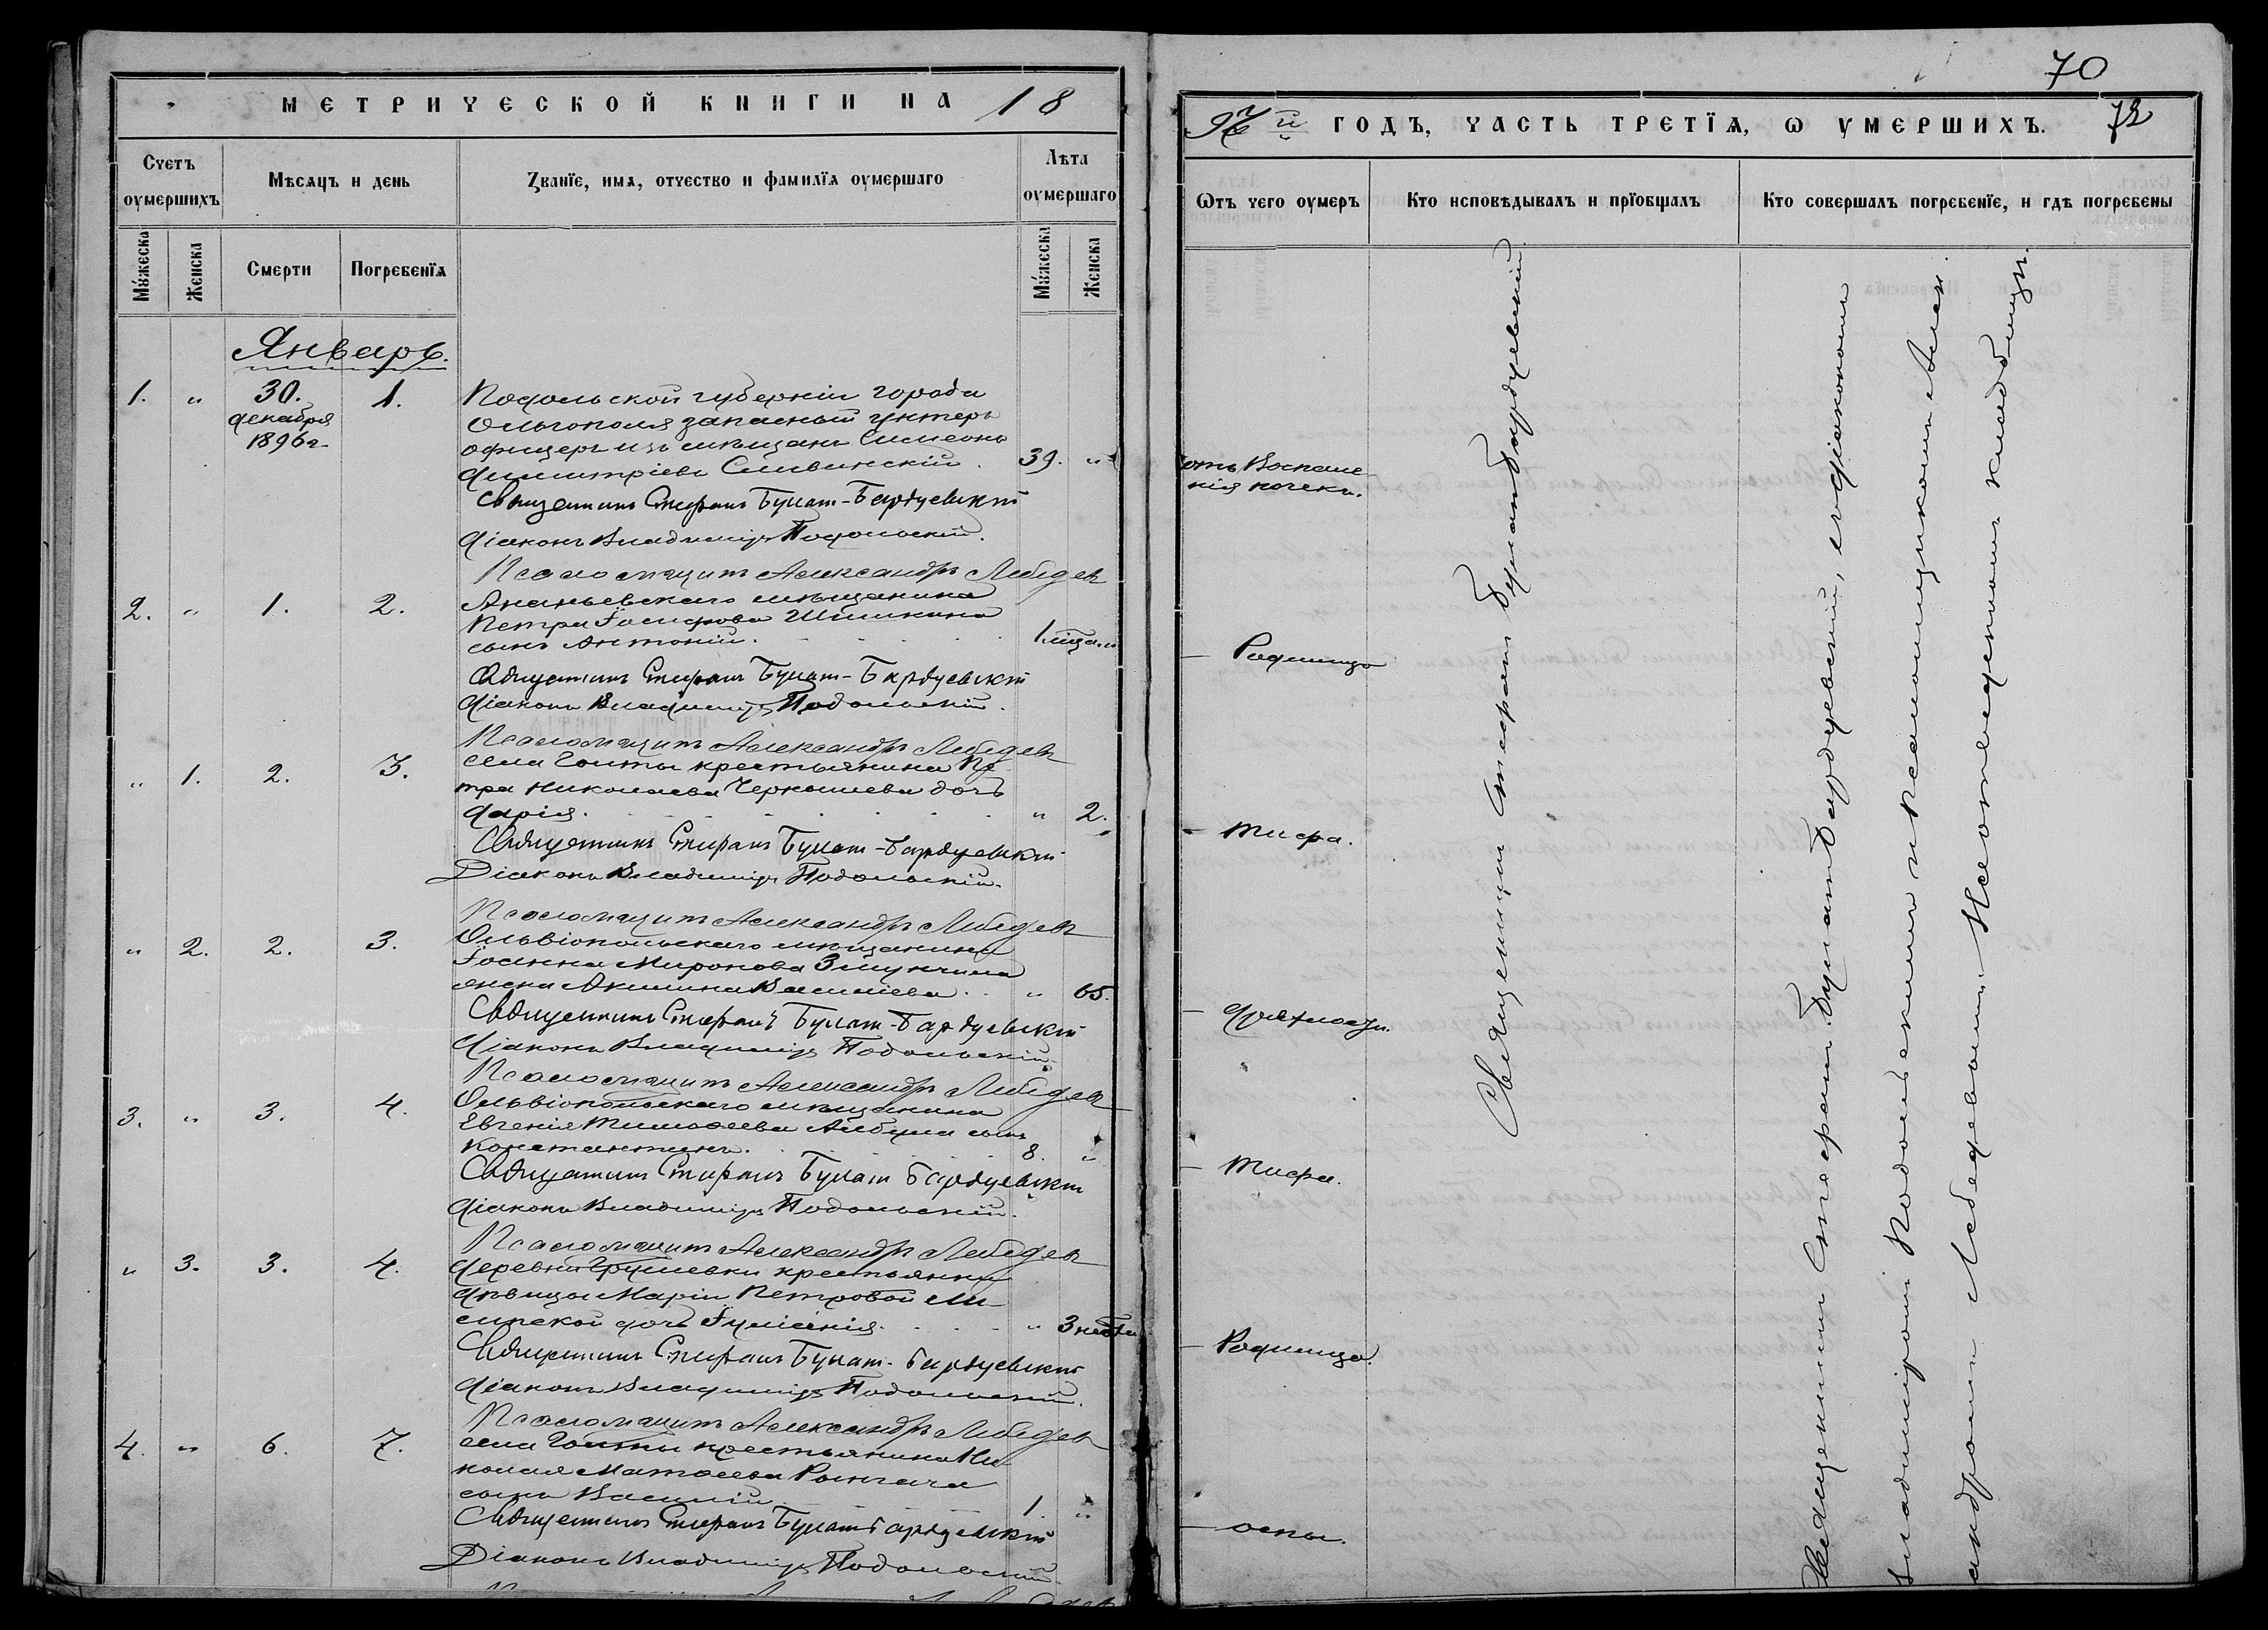 МЕТРИЧЕСКОЙ КНИГИ НА 18
Счетъ оумершихъ
Мѣсяцъ и день
Званїе, имя, отчество и фамилїя оумершаго
Лѣта оумершаго
Мꙋжеска
Женска
Смерти
Погребенїя
Мꙋжеска
Женска
Январь.
1. " 30. декабря 1896 г. 1.
Подольской губерніи города
Ольгополя запасный унтеръ
офицеръ изъ мѣщанъ Симеонъ
Димитріевъ Сливинскій. 39. "
Священникъ Стефанъ Булат-Бардуевскій
Діаконъ Владиміръ Подольскій.
Псаломщикъ Александръ Лебедевъ
2. " 1. 2.
Ананьевскаго мѣщанина
Петра Іосифова Шишкина
сынъ Антоній. 1 мѣца. "
Священникъ Стефанъ Булат-Бардуевскій
Діаконъ Владиміръ Подольскій.
Псаломщикъ Александръ Лебедевъ
" 1. 2. 3.
села Голты крестьянина Пе-
тра Николаева Чернышева дочь
Дарія. " 2.
Священникъ Стефанъ Булат-Бардуевскій
Діаконъ Владиміръ Подольскій.
Псаломщикъ Александръ Лебедевъ
" 2. 2. 3.
Ольвіопольскаго мѣщанина
Іоанна Миронова
жена Акилина Василіева. " 65.
Священникъ Стефанъ Булат-Бардуевскій
Діаконъ Владиміръ Подольскій.
Псаломщикъ Александръ Лебедевъ
3. " 3. 4.
Ольвіопольскаго мѣщанина
Евгенія Тимоѳеева Албула сынъ
Константинъ. 8. "
Священникъ Стефанъ Булат Бардуевскій
Діаконъ Владиміръ Подольскій.
Псаломщикъ Александръ Лебедевъ
" 3. 3. 4.
деревни Грушевки крестьянки
дѣвицы Маріи Петровой
дочь Іуліанія. " 3 недѣли
Священникъ Стефанъ Булат-Бардуевскій
Діаконъ Владиміръ Подольскій.
Псаломщикъ Александръ Лебедевъ
4. " 6. 7.
села Голты крестьянина Ни-
колая Матѳеева
сынъ Василій 1. "
Священникъ Стефанъ Булат Бардуевскій
Діаконъ Владиміръ Подольскій
70
97й ГОДЪ, ЧАСТЬ ТРЕТЇЯ, Ѡ ОУМЕРШИХЪ.
72
Ѿтъ чего оумеръ
Кто исповѣдывалъ и прїобщалъ
Кто совершалъ погребенїе, и гдѣ погребены
отъ Воспале-
нія почекъ.
— Родимца
— тифа.
— дряхлости.
— тифа.
— Родимца.
— оспы.
Священникъ Стефанъ Булатъ Бардуевскій
Священникъ Стефанъ Булатъ Бардуевскій, съ діакономъ
Владиміромъ Подольскимъ и псаломщикомъ Алек-
сандромъ Лебедевымъ. На отведенномъ кладбищѣ.